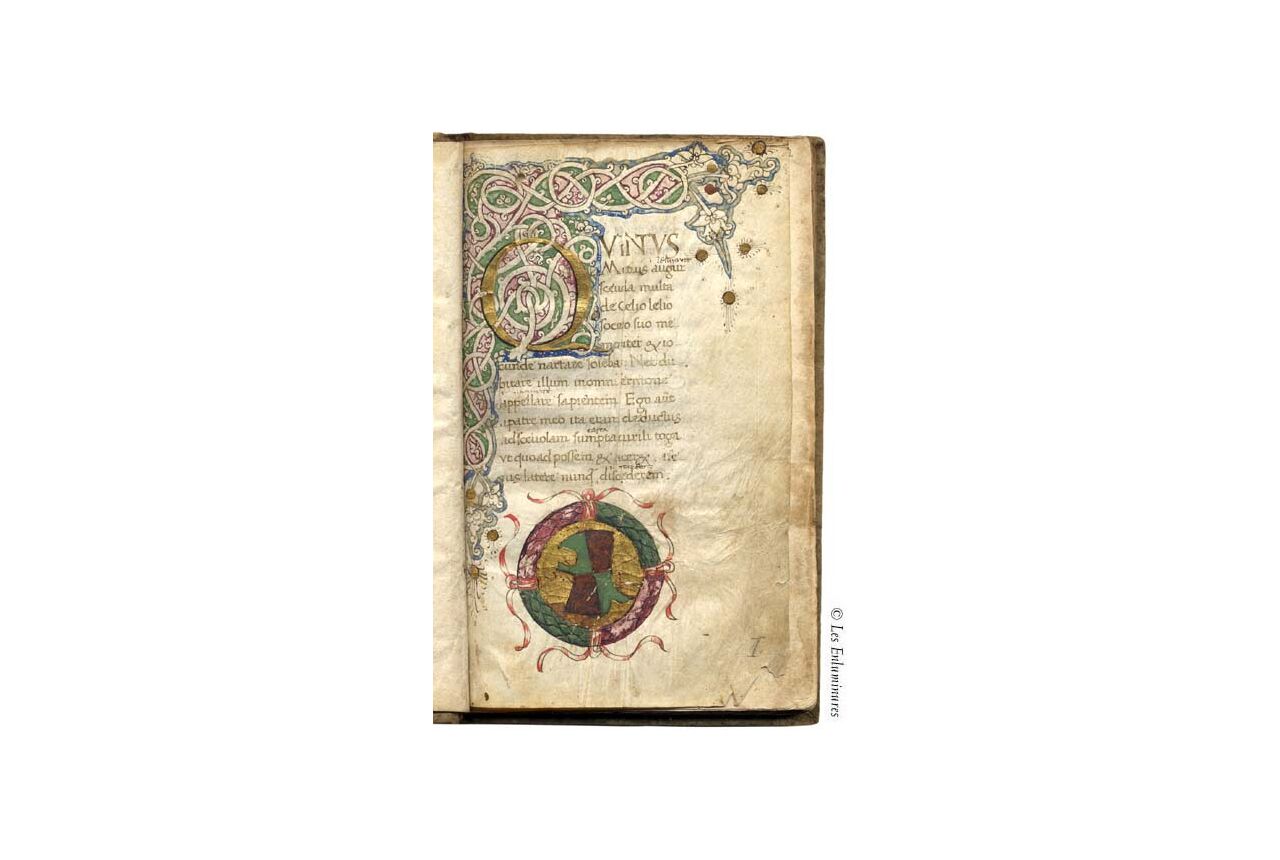 QVINTVS
Mutius augur
sceuola multa
de Celio lelio
socero suo me
moriter & io
cunde narrare solebat. Nec du
bitare illum in omni sermone
appellare sapientem. Ego aut
a patre meo ita eram deductus
ad sceuolam sumpta uirili toga
ut quoad possem &
latere nunq discederem.
I
© Les Enluminures